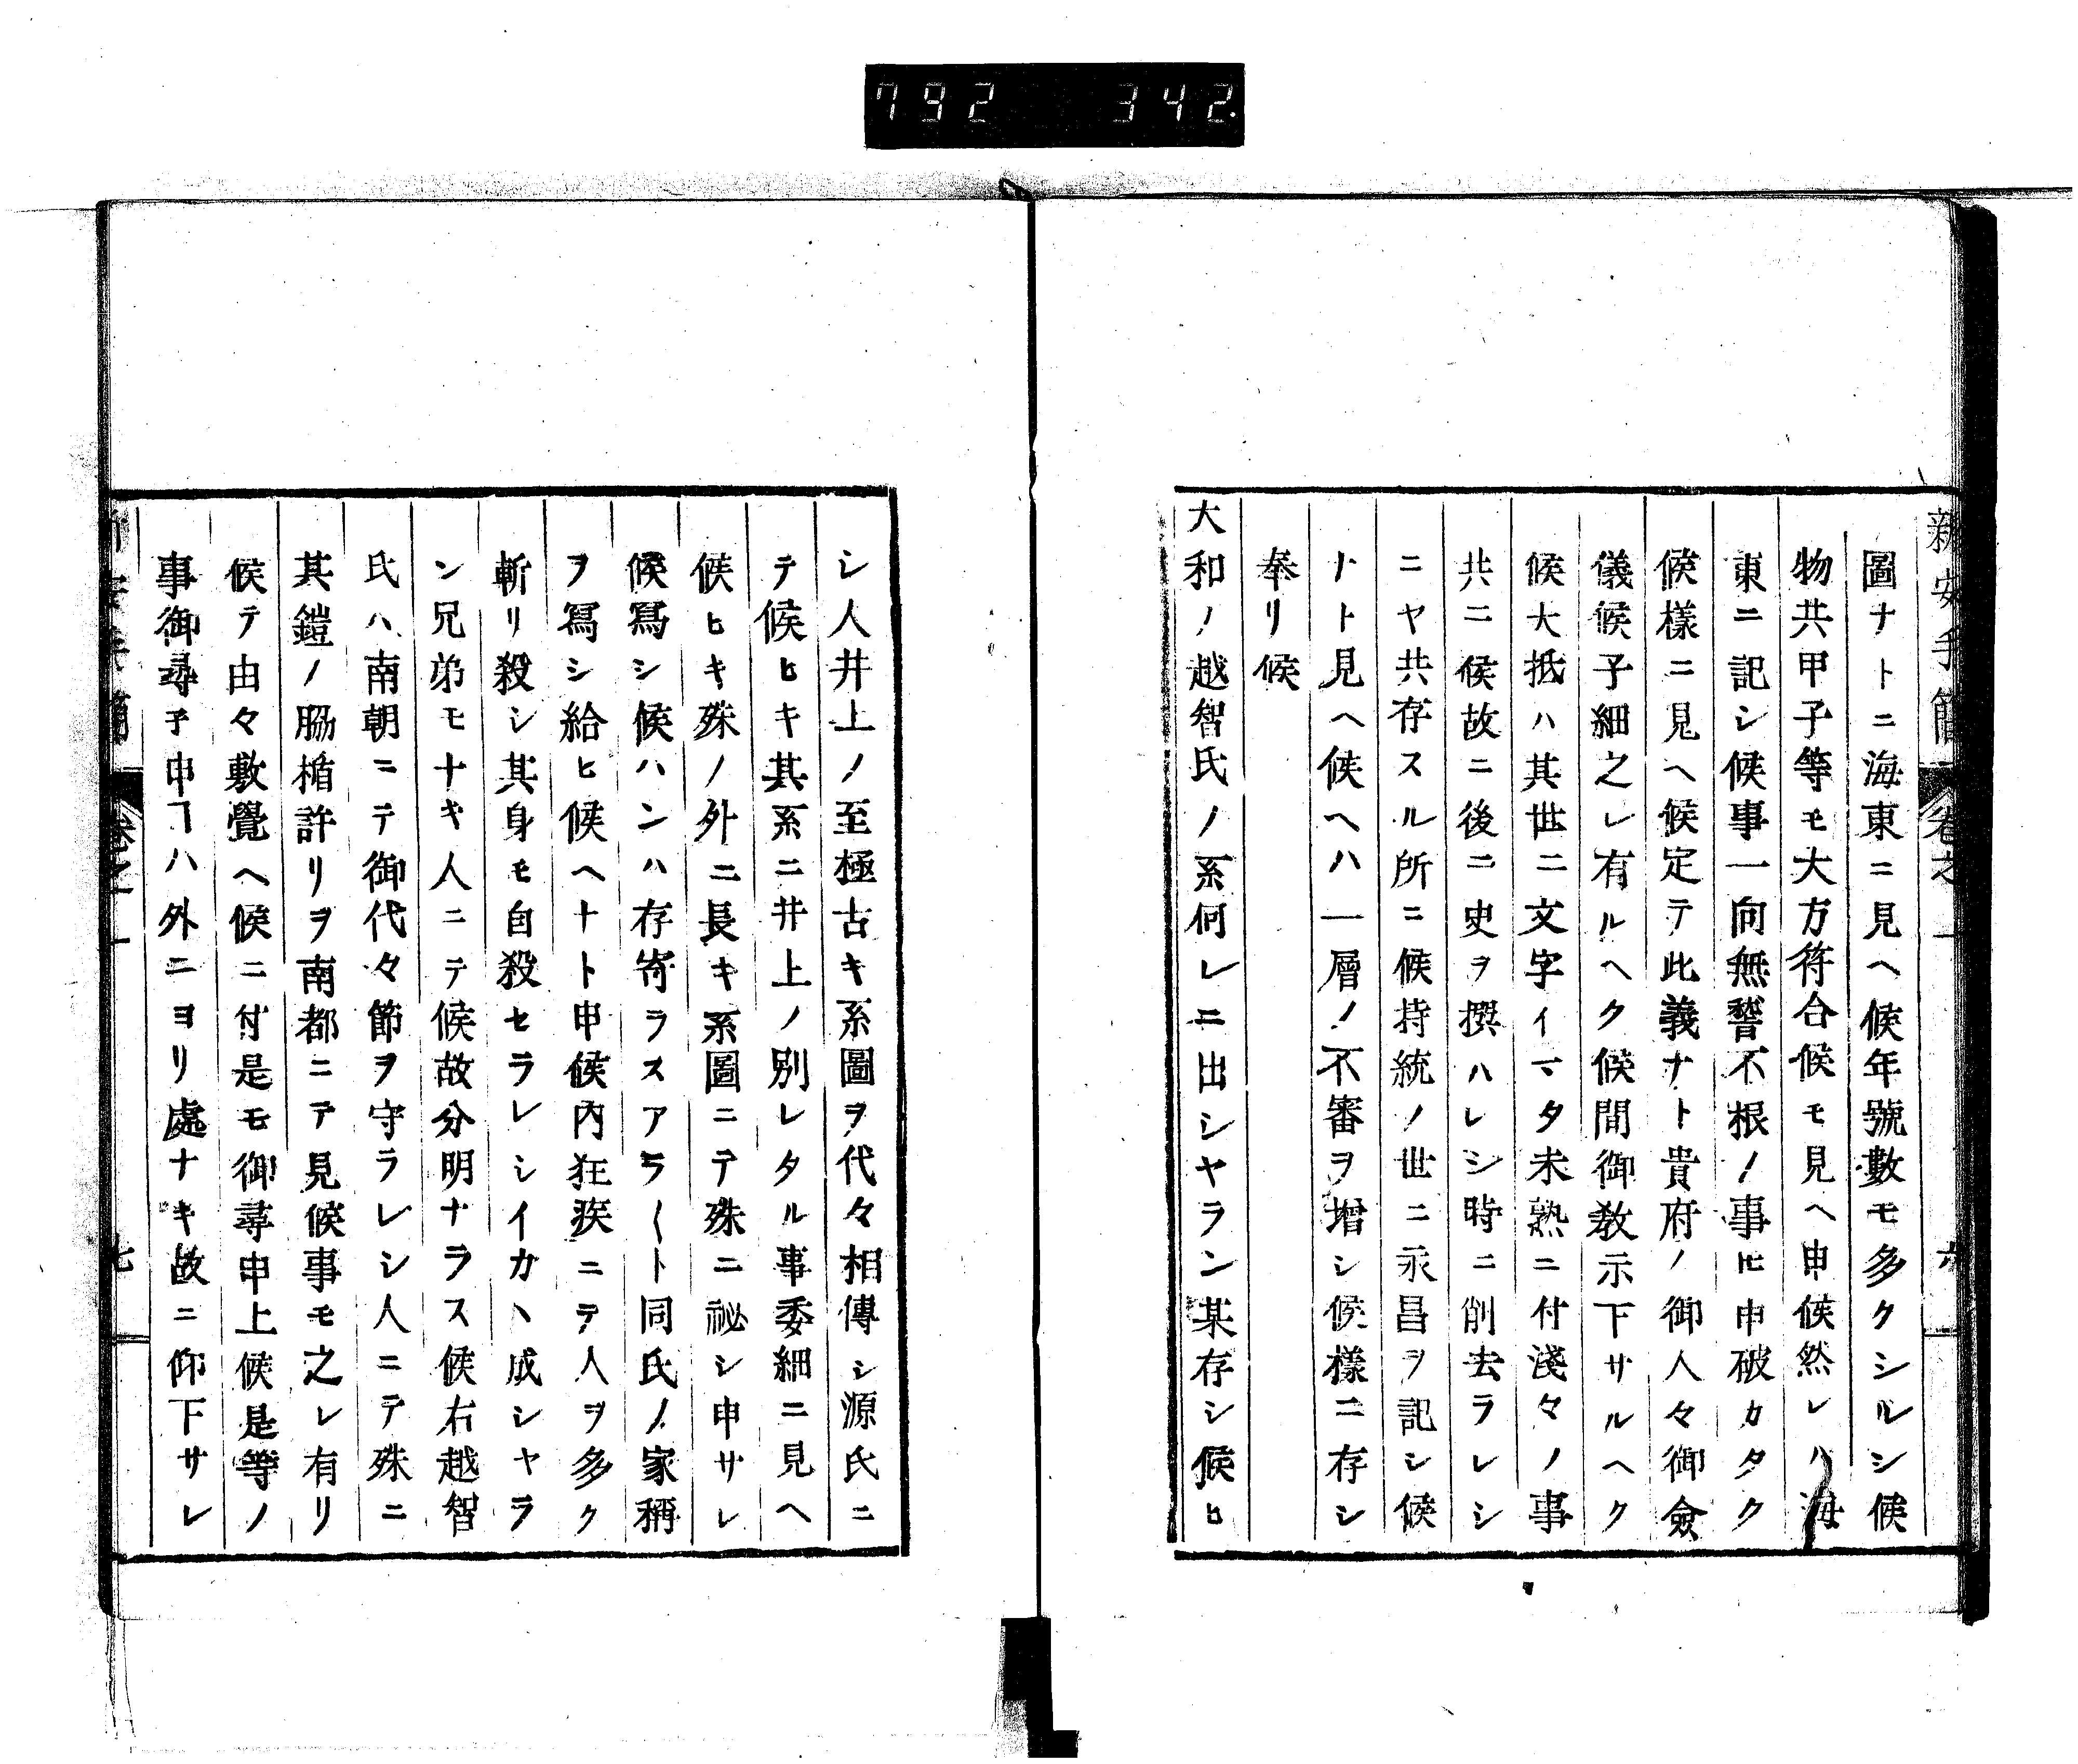 792 342
新安手簡 卷之一 六
圖ナトニ海東ニ見ヘ候年號數モ多クシルシ候
物共甲子等モ大方符合候モ見ヘ申候然レハ海
東ニ記シ候事一向無誓不根ノ事ヒ申破カタク
候樣ニ見ヘ候定テ此義ナト貴府ノ御人々御僉
儀候子細之レ有ルヘク候間御敎示下サルヘク
候大抵ハ其世ニ文字イマタ未熟ニ付淺々ノ事
共ニ候故ニ後ニ史ヲ撰ハレシ時ニ削去ラレシ
ニヤ共存スル所ニ候持統ノ世ニ永昌ヲ記シ候
トト見ヘ候ヘハ一層ノ不審ヲ增シ候樣ニ存シ
奉リ候
大和ノ越智氏ノ系何レニ出シヤラン某存シ候ヒ
シ人井上ノ至極古キ系圖ヲ代々相傳シ源氏ニ
テ候ヒキ其系ニ井上ノ別レタル事委細ニ見ヘ
候ヒキ殊ノ外ニ長キ系圖ニテ殊ニ祕シ申サレ
候寫シ候ハンハ存寄ラスアラ〱ト同氏ノ家稱
ヲ寫シ給ヒ候ヘナト申候內狂疾ニテ人ヲ多ク
斬リ殺シ其身モ自殺セラレシイカヽ成シヤラ
ン兄弟モナキ人ニテ候故分明ナラス候右越智
氏ハ南朝ニテ御代々節ヲ守ラレシ人ニテ殊ニ
其鎧ノ脇楯許リヲ南都ニテ見候事モ之レ有リ
候テ由々敷覺ヘ候ニ付是モ御尋申上候是等ノ
事御尋子申ヿハ外ニヨリ處ナキ故ニ仰下サレ
卷之一 七